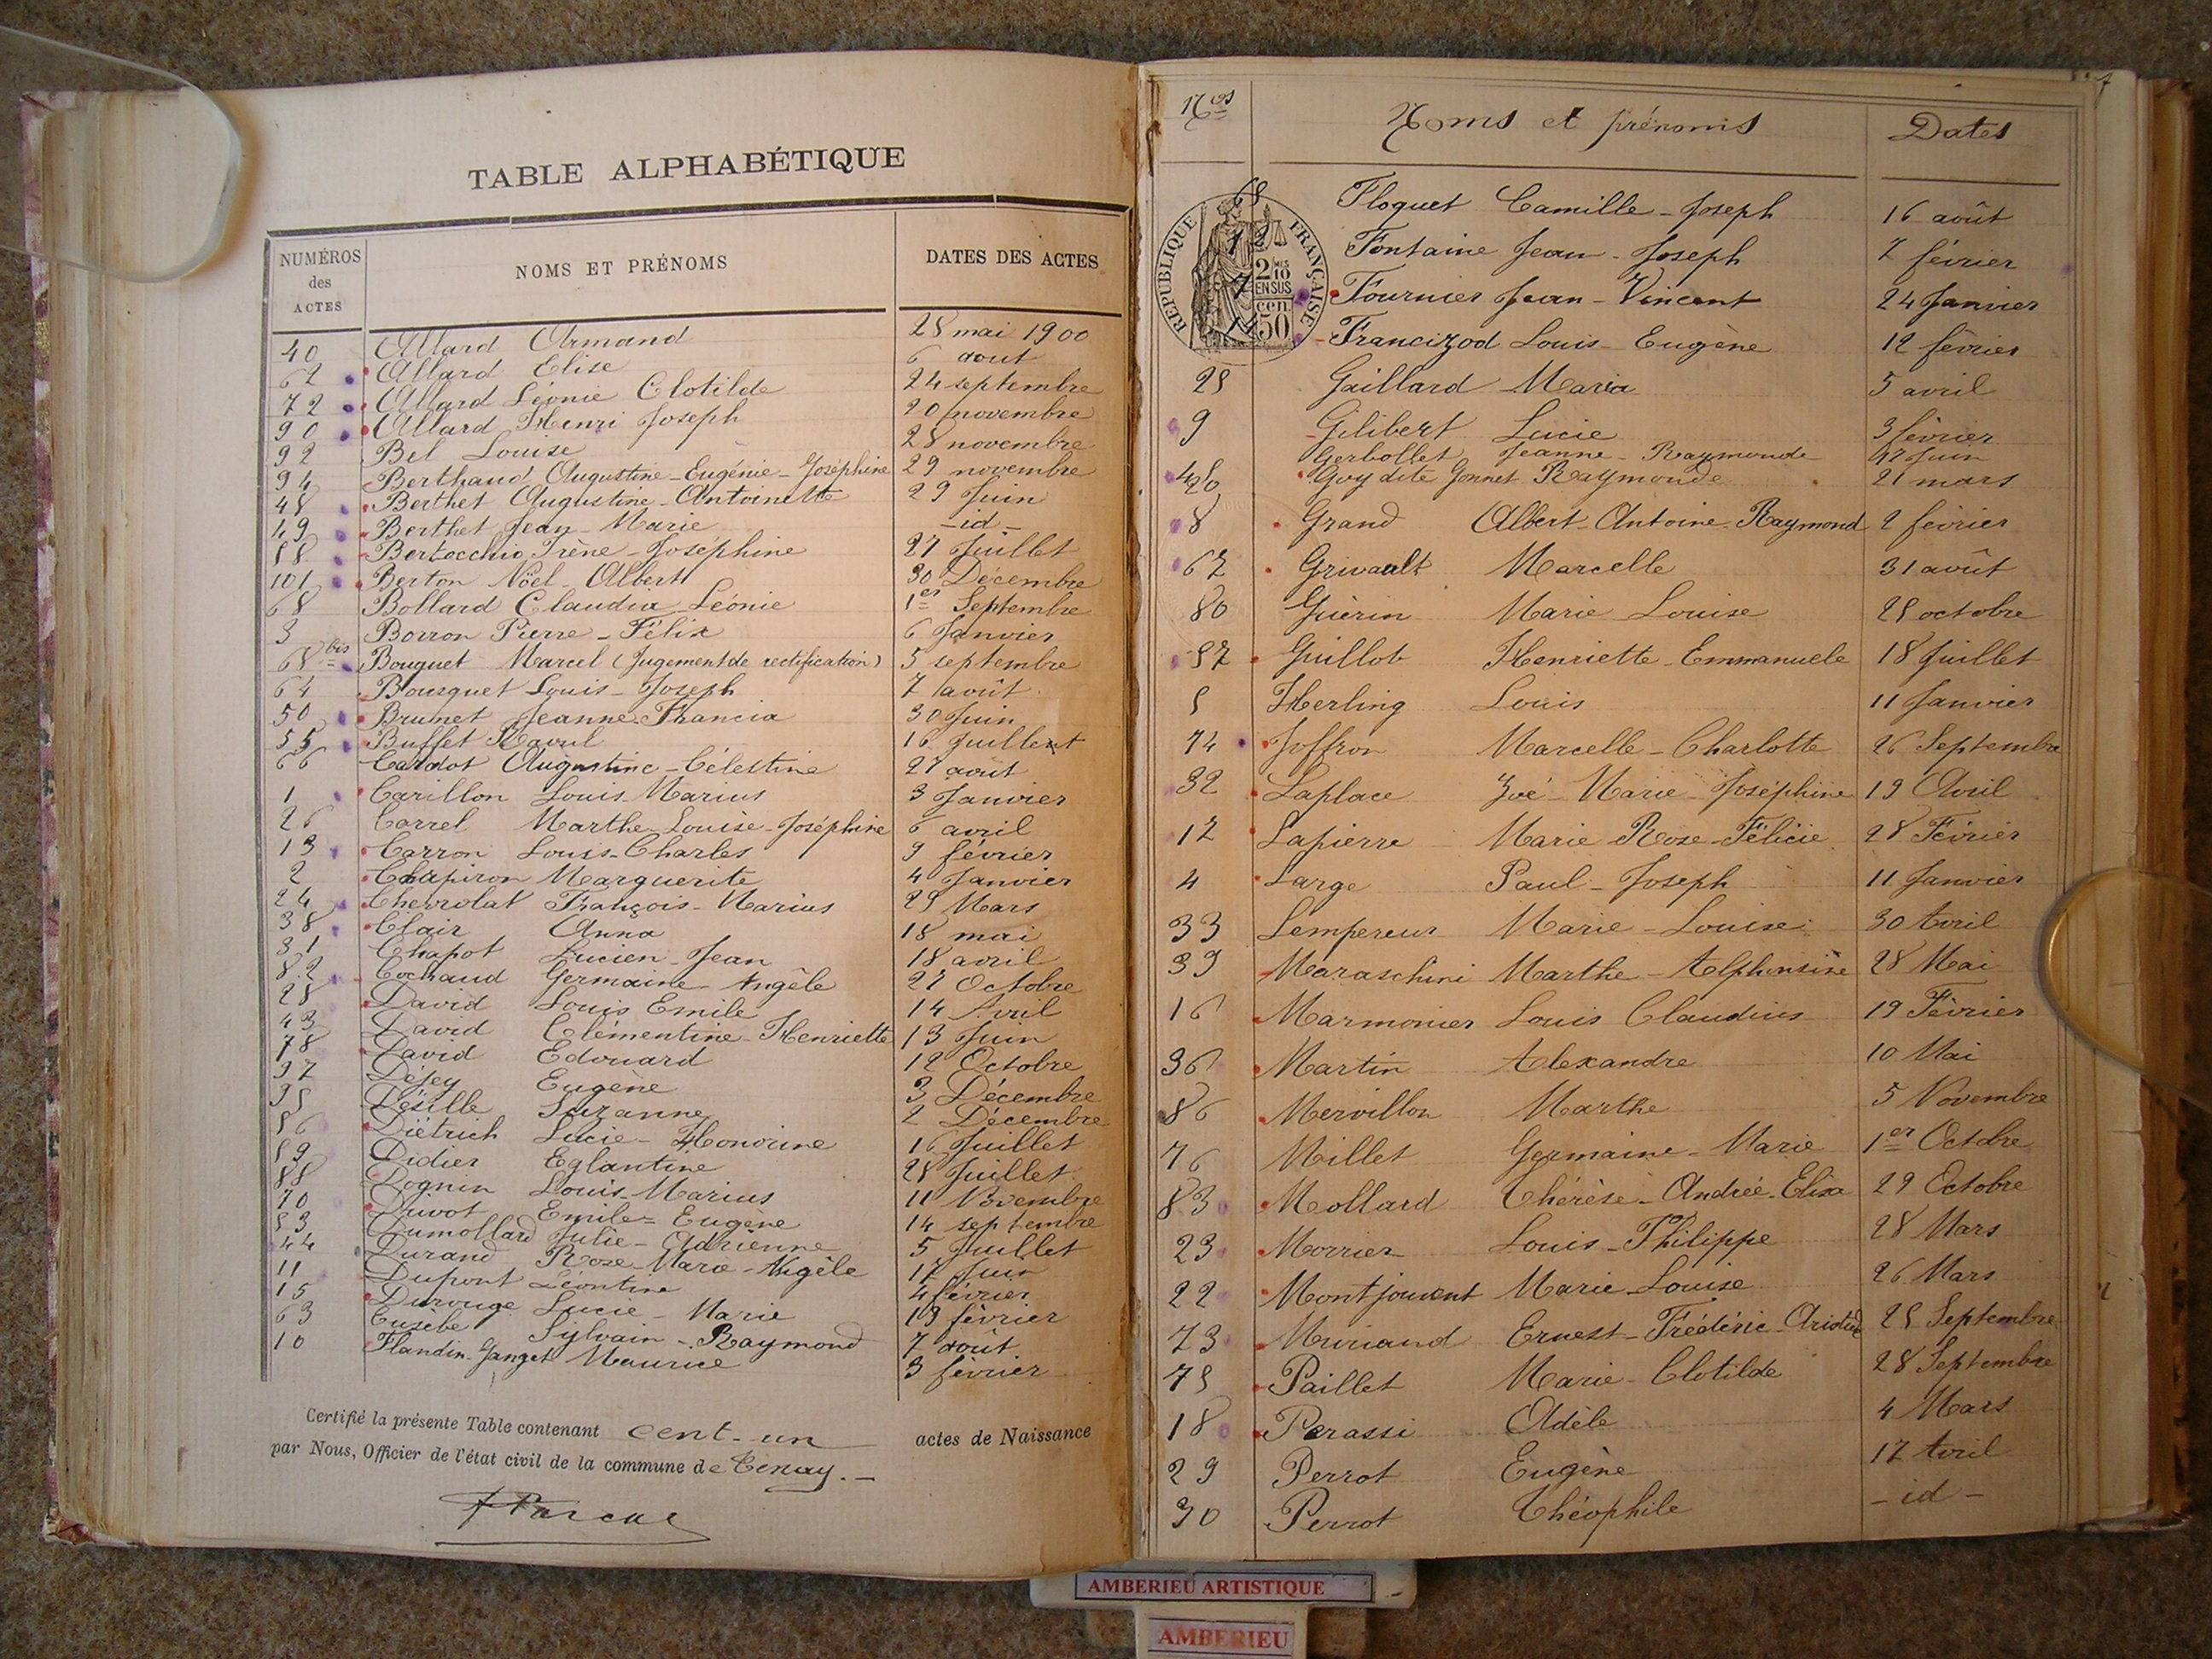 TABLE ALPHABÉTIQUE
NUMÉROS des ACTES NOMS ET PRÉNOMS DATES DES ACTES
40 Allard Armand 28 mai 1900
62 Allard Elise 6 aout
72 Allard Léonie Clotilde 24 septembre
90 Allard Henri Joseph 20 novembre
92 Bel Louise 28 novembre
94 Berthaud Augustine-Eugénie-Joséphine 29 novembre
48 Berthet Augustine-Antoinette 29 Juin
49 Berthet Jean-Marie -id-
58 Bertocchio Irène-Joséphine 27 Juillet
101 Berton Nöel-Albert 30 Décembre
68 Bollard Claudia-Léonie 1er Septembre
3 Borron Pierre-Félix 6 Janvier
68 bis Bouquet Marcel (Jugement de rectification) 5 septembre
64 Bousquet Louis-Joseph 7 août
50 Brunet Jeanne-Francia 30 Juin
55 Buffet Raoul 16 Juillet
66 Cardot Augustine-Célestine 27 août
1 Carillon Louis-Marius 3 Janvier
26 Carrel Marthe-Louise-Joséphine 6 avril
13 Carron Louis-Charles 9 février
2 Chapiron Marguerite 4 Janvier
24 Chevrolat François-Marius 29 Mars
38 Clair Anna 18 mai
31 Chapot Lucien-Jean 18 avril
82 Cochaud Germaine-Angèle 27 Octobre
28 David Louis Emile 14 Avril
43 David Clémentine-Henriette 13 Juin
78 David Edouard 12 Octobre
97 Déjey Eugène 3 Décembre
95 Désille Suzanne 2 Décembre
56 Diétrich Lucie-Honorine 16 Juillet
59 Didier Eglantine 28 Juillet
88 Dognin Louis-Marius 11 Novembre
70 Duvot Emile-Eugène 14 septembre
53 Dumollard Julie-Adrienne 5 Juillet
44 Durand Rose-Marie-Angèle 17 Juin
11 Dupont Léontine 4 février
15 Durouge Lucie-Marie 19 février
63 Eusèbe Sylvain-Raymond 7 août
10 Flandin-Ganget Maurice 3 février
Certifié la présente Table contenant cent-un actes de Naissance
par Nous, Officier de l'état civil de la commune de Tenay.-
Nos Noms et prénoms Dates
65 Floquet Camille-Joseph 16 août
12 Fontaine Jean-Joseph 7 février
7 Fournier Jean-Vincent 24 Janvier
14 Francizod Louis-Eugène 12 février
RÉPUBLIQUE FRANÇAISE
2/10 EN SUS
cen 50
25 Gaillard Maria 5 avril
9 Gilibert Lucie 3 février
Gerbollet Jeanne-Raymonde 17 Juin
Goy dite Jonnet Raymonde 21 mars
8 Grand Albert-Antoine-Raymond 2 février
67 Grivault Marcelle 31 août
80 Guérin Marie Louise 25 octobre
57 Guillot Henriette-Emmanuele 18 Juillet
5 Herling Louis 11 Janvier
74 Joffron Marcelle-Charlotte 26 Septembre
32 Laplace Zoé-Marie-Joséphine 19 Avril
17 Lapierre Marie Rose-Félicie 28 Février
4 Large Paul-Joseph 11 Janvier
33 Lempereur Marie-Louise 30 Avril
39 Maraschini Marthe-Alphonsine 28 Mai
16 Marmonier Louis Claudius 19 Février
36 Martin Alexandre 10 Mai
86 Mervillon Marthe 5 Novembre
76 Millet Germaine-Marie 1er Octobre
83 Mollard Thérèse-Andrée-Elisa 29 Octobre
23 Morrier Louis-Philippe 28 Mars
22 Montjouvent Marie-Louise 26 Mars
73 Muriaud Ernest-Frédéric-Aristide 25 Septembre
75 Paillet Marie-Clotilde 28 Septembre
18 Perassi Adèle 4 Mars
29 Perrot Eugène 17 Avril
30 Perrot Théophile -id-
AMBERIEU ARTISTIQUE
AMBERIEU